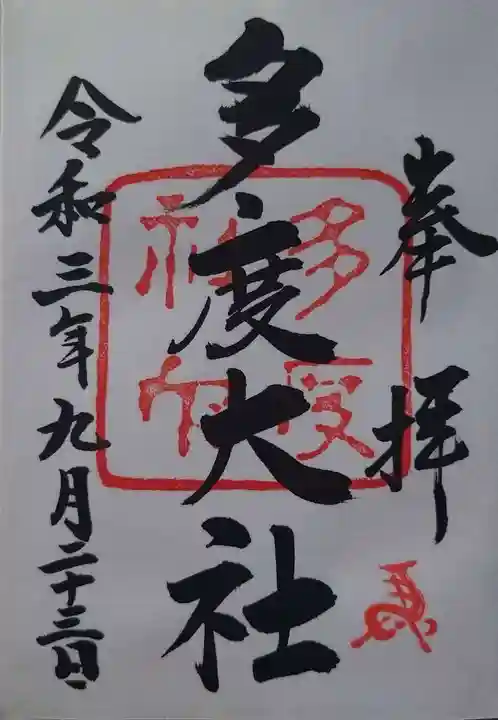 奉拝
多度大社
令和三年九月二十三日